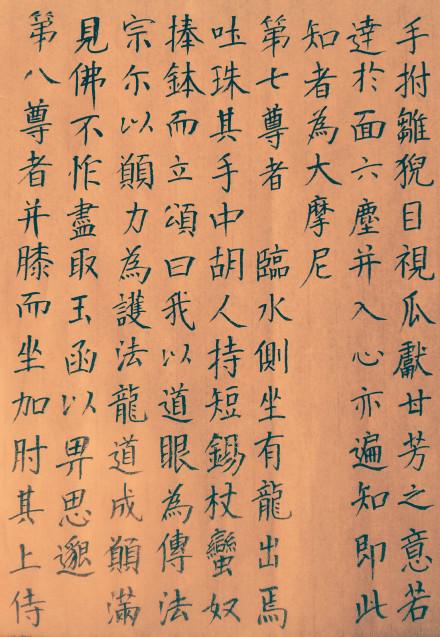 手拊雛猊目視瓜獻甘芳之意若
達於面六塵并入心亦遍知即此
知者為大摩尼
第七尊者　臨水側坐有龍出焉
吐珠其手中胡人持短錫杖蠻奴
捧鉢而立頌曰我以道眼為傳法
宗尔以願力為護法龍道成願滿
見佛不怍盡取玉函以畀思邈
第八尊者并膝而坐加肘其上侍